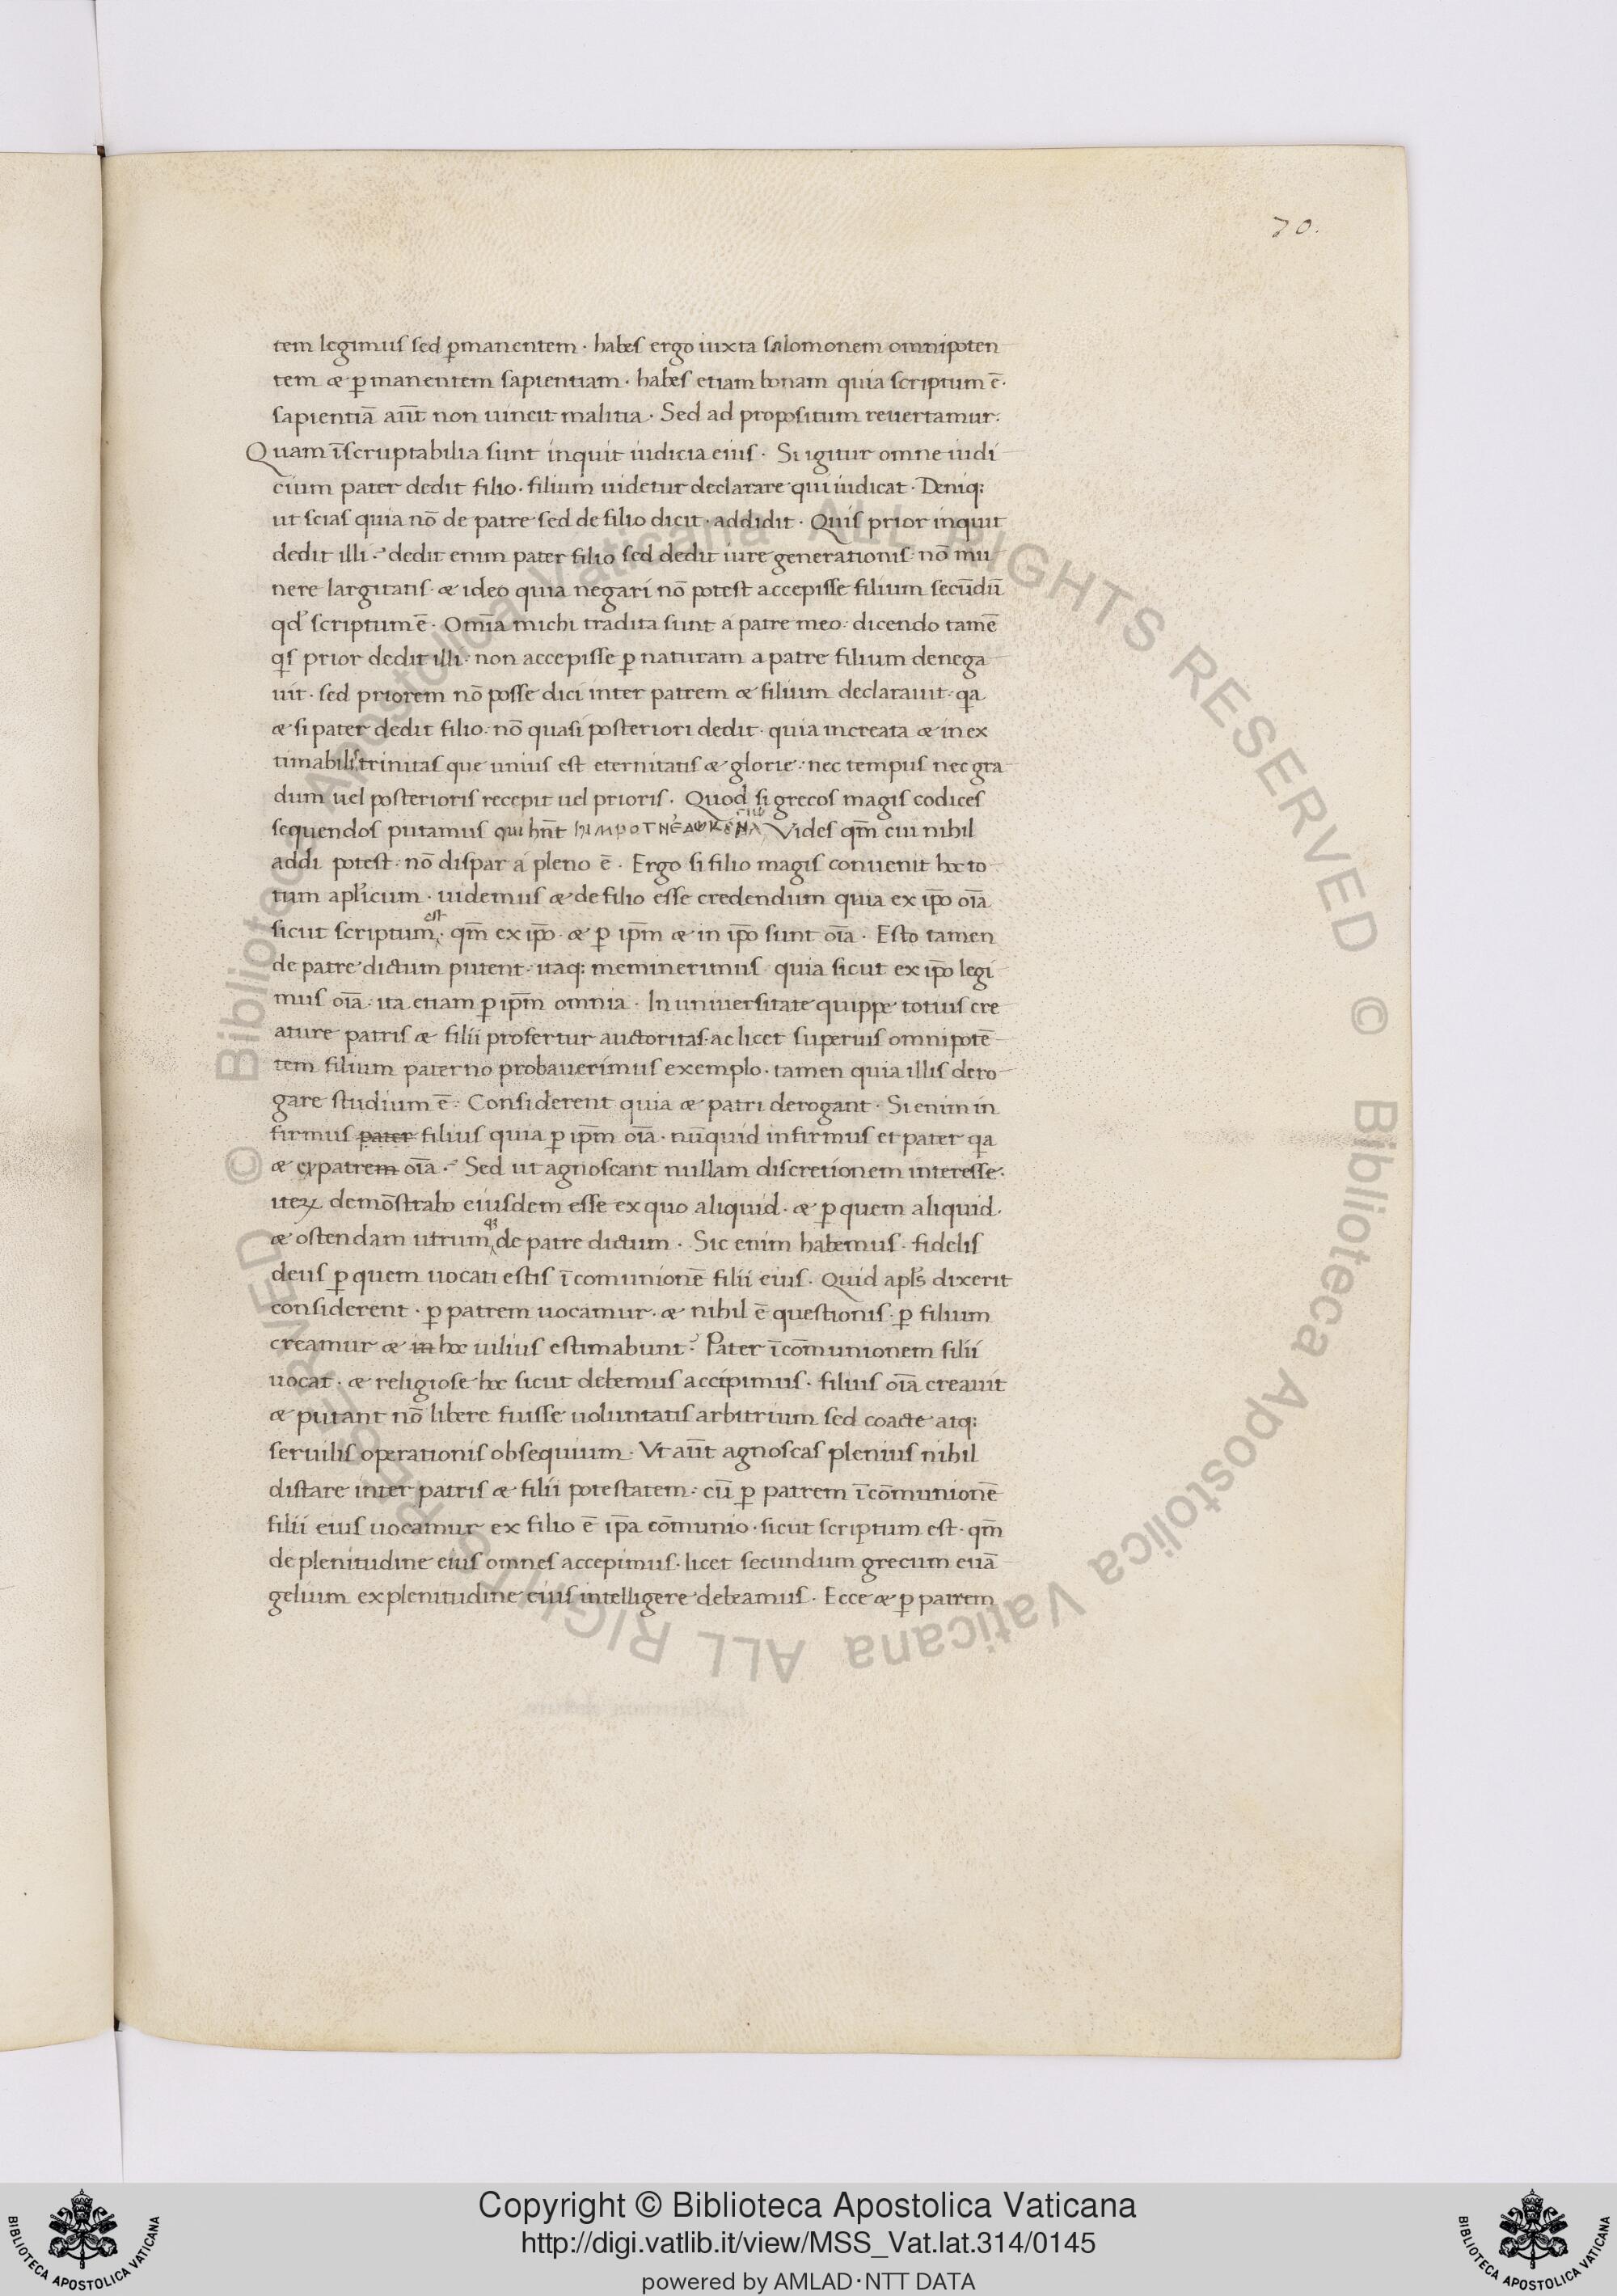 70.
tem legimus sed ꝑmanentem · habes ergo iuxta salomonem omnipoten
tem æ ꝑmanentem sapientiam · habes etiam bonam quia scriptum ē·
sapientiā aūt non uincit malitia · Sed ad propositum reuertamur:
Quam īscruptabilia sunt inquit iudicia eius · Si igitur omne iudi
cium pater dedit filio · filium uidetur declarare qui iudicat · Deniq;
ut scias quia nō de patre sed de filio dicit · addidit · Quis prior inquit
dedit illi ·? dedit enim pater filio sed dedit iure generationis: nō mu
nere largitatis · æ ideo quia negari nō potest accepisse filium secūdū
qđ scriptum ē · Omīa michi tradita sunt a patre meo: dicendo tamē
qs prior dedit illi · non accepisse ꝑ naturam a patre filium denega
uit · sed priorem nō posse dici inter patrem æ filium declarauit · qa
æ si pater dedit filio · nō quasi posteriori dedit · quia increata æ inex
timabilis trinitas que unius est eternitatis æ glorie · nec tempus nec gra
dum uel posterioris recepit uel prioris · Quod si grecos magis codices
sequendos putamus qui hn̄t Vides qm̄ eiu nihil
addi potest · nō dispar a pleno ē · Ergo si filio magis conuenit hoc to
tum apl'icum · uidemus æ de filio esse credendum quia ex ip̄o oīa
sicut scriptum est · qm̄ ex ip̄o · æ ꝑ ip̄m æ in ip̄o sunt oīa · Esto tamen
de patre dictum putent · itaq; meminerimus quia sicut ex ip̄o legi
mus oīa · ita etiam ꝑ ip̄m omnia · In uniuersitate quippe totius cre
ature patris æ filii profertur auctoritas · ac licet superius omnipotē
tem filium paterno probauerimus exemplo · tamen quia illis dero
gare studium ē · Considerent quia æ patri derogant · Si enim in
firmus pater filius quia ꝑ ip̄m oīa · nūquid infirmus et pater qa
æ patrem oīa ·? Sed ut agnoscant nullam discretionem interesse·
iteꝝ demōstrabo eiusdem esse ex quo aliquid · æ ꝑ quem aliquid ·
æ ostendam utrumq; de patre dictum · Sic enim habemus · fidelis
deus ꝑ quem uocati estis ī comunionē filii eius · Quid apl's dixerit
considerent · ꝑ patrem uocamur · æ nihil ē questionis · ꝑ filium
creamur æ in hoc uilius estimabunt? Pater ī cōmunionem filii
uocat · æ religiose hoc sicut debemus accipimus · filius oīa creauit
æ putant nō libere fuisse uoluntatis arbitrium sed coacte atq;
seruilis operationis obsequium · Vt aūt agnoscas plenius nihil
distare inter patris æ filii potestatem: cū ꝑ patrem ī cōmunionē
filii eius uocamur ex filio ē ip̄a cōmunio · sicut scriptum est · qm̄
de plenitudine eius omnes accepimus · licet secundum grecum euā
gelium ex plenitudine eius intelligere debeamus · Ecce æ ꝑ patrem
© Biblioteca Apostolica Vaticana ALL RIGHTS RESERVED © Biblioteca Apostolica Vaticana ALL RIGHTS RESERVED
Copyright © Biblioteca Apostolica Vaticana
http://digi.vatlib.it/view/MSS_Vat.lat.314/0145
powered by AMLAD·NTT DATA
BIBLIOTECA APOSTOLICA VATICANA
BIBLIOTECA APOSTOLICA VATICANA